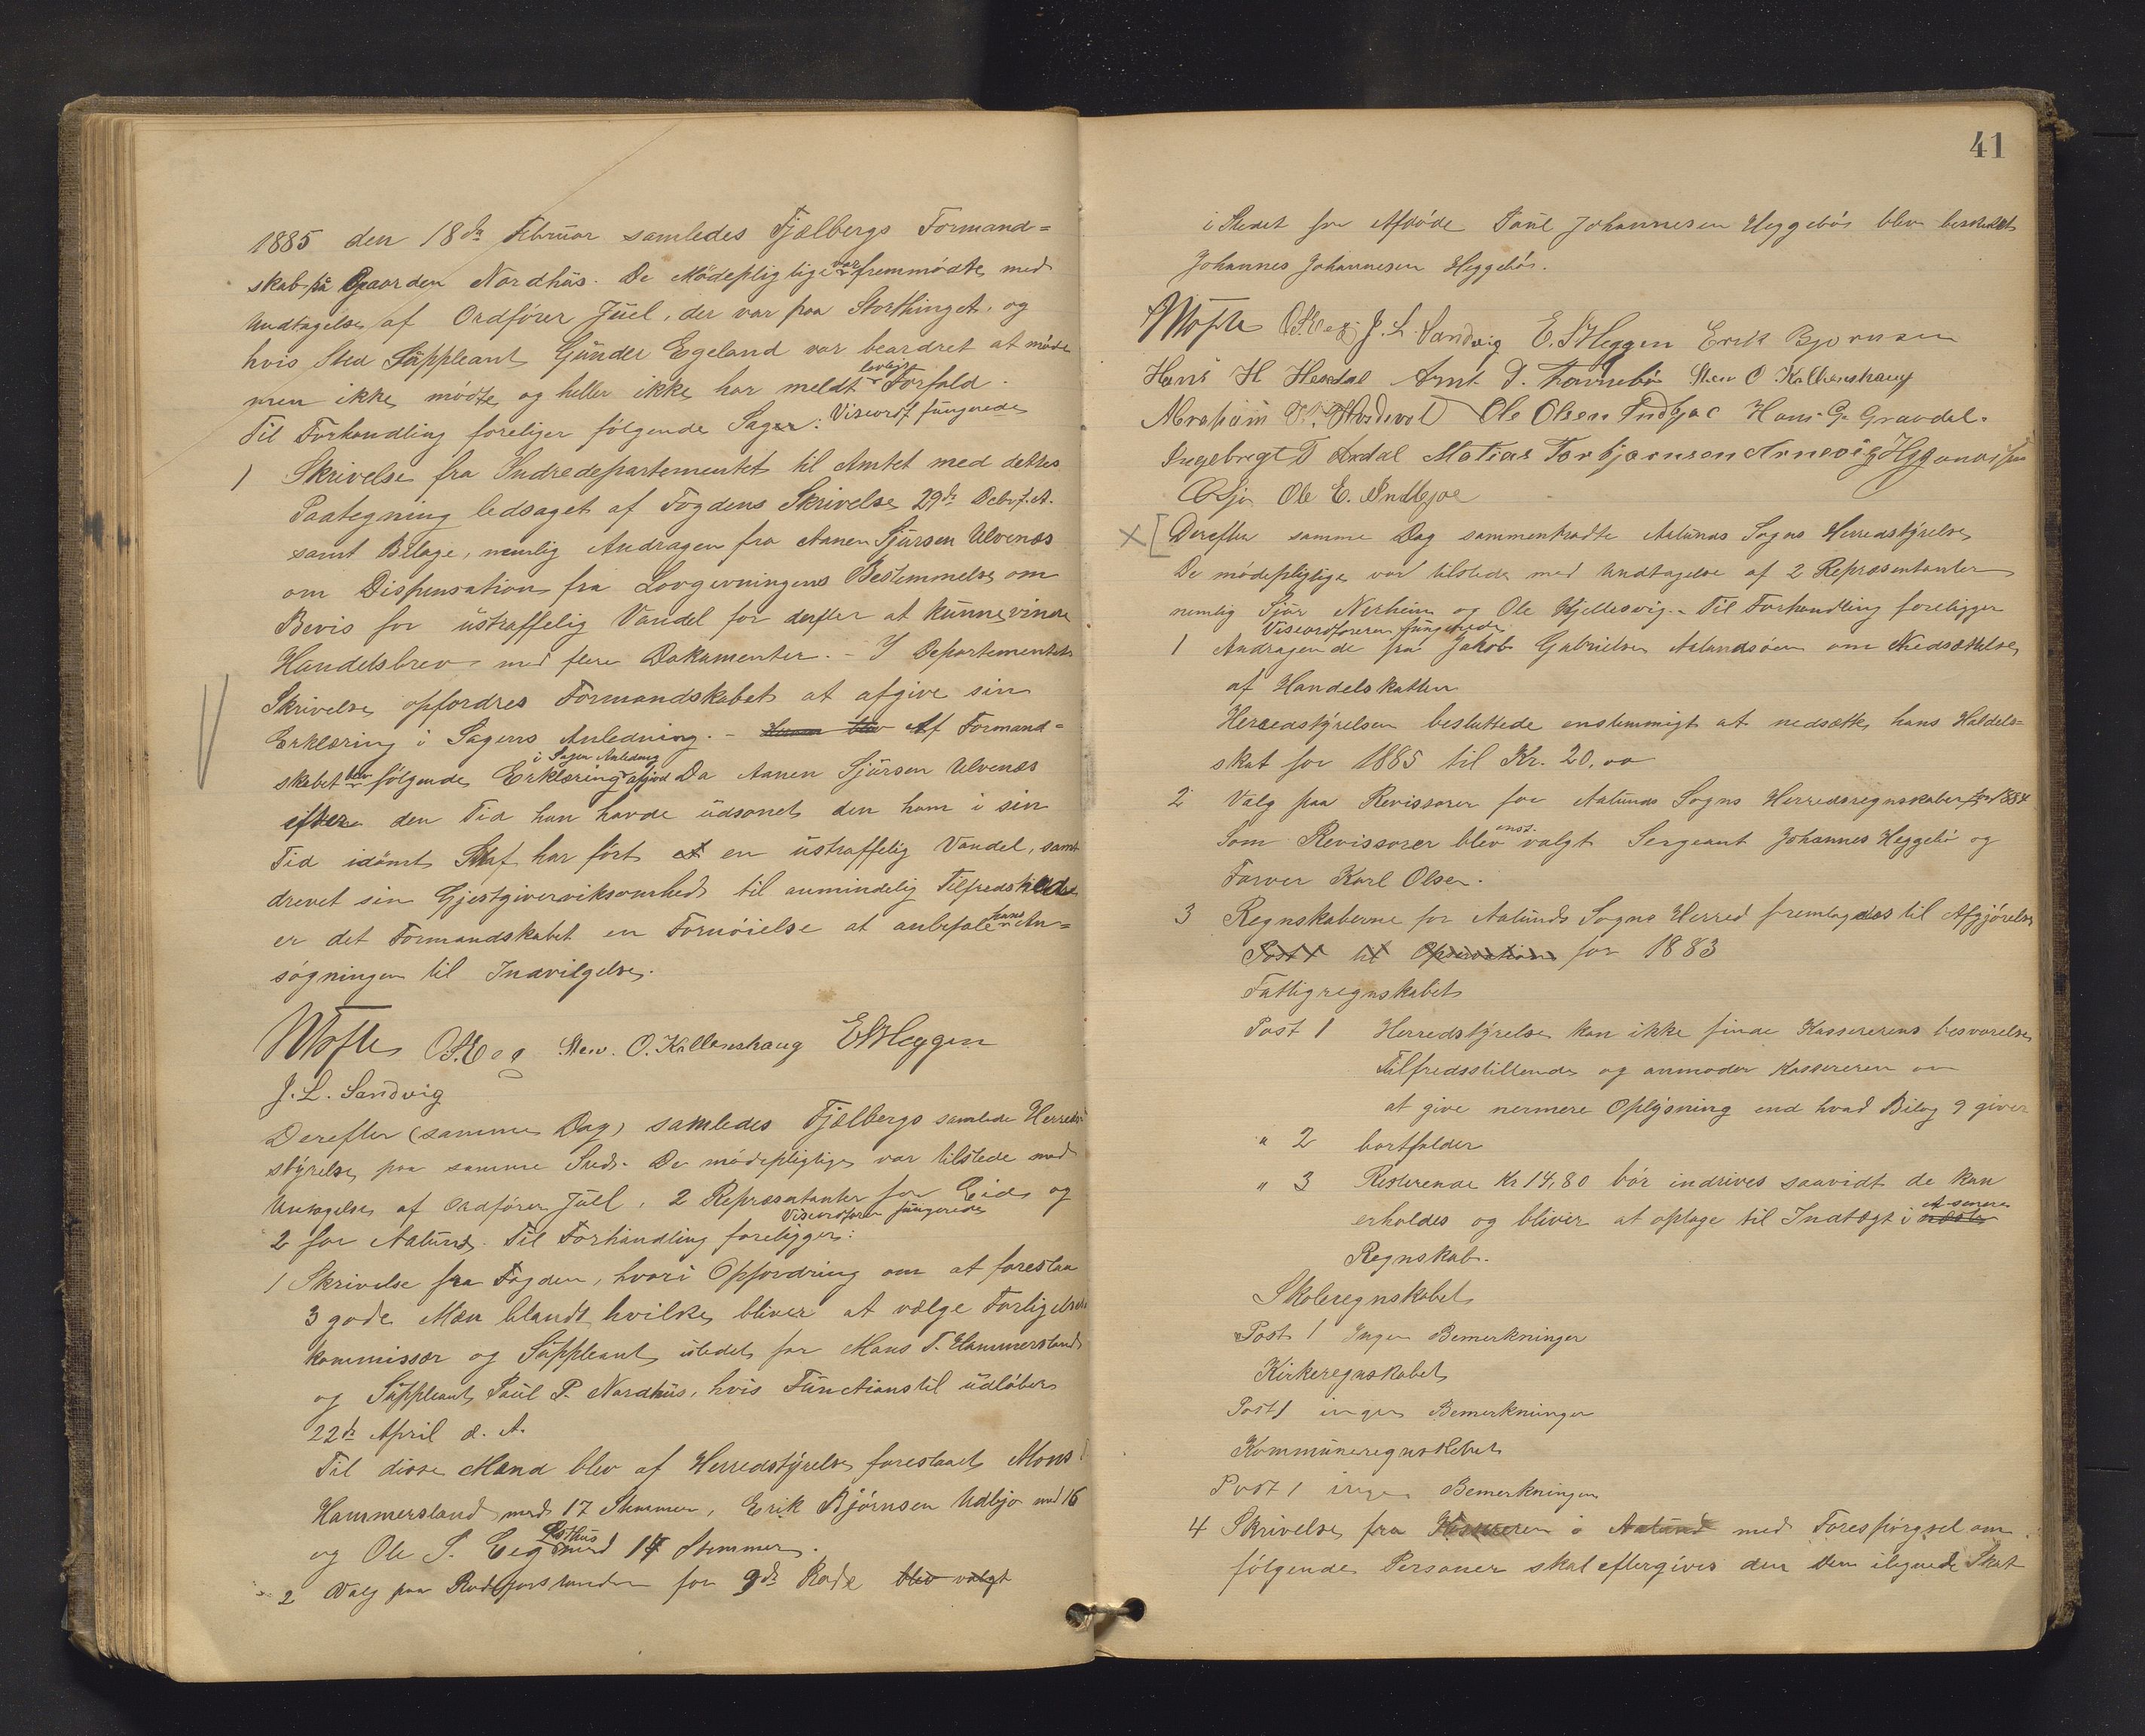 1885 den 18de Februar samledes Fjælbergs Formand=
skab på Gaarden Nordhus. De Mødepligtige var fremmødte med
Undtagelse af Ordfører Juel, der var paa Storthinget, og
hvis Sted Suppleant Gunder Egeland var beordret at møde
men ikke mødte og heller ikke har meldt lovligt Forfald.
Til Forhandling foreliger følgende Sager: Viseordf fungerede
1 Skrivelse fra Indredepartementet til Amtet med dettes
Paategning ledsaget af Fogdens Skrivelse 29de Debr f. A.
samt Bilage, nemlig Andragen fra Aanen Sjursen Ulvenæs
om Dispensation fra Lovgivningens Bestemmelse om
Bevis for ustraffelig Vandel for derfter at kunne vinde
Handelsbrev med flere Dokumenter. - I Departementets
Skrivelse opfordres Formandskabet at afgive sin
Erklæring i Sagens Anledning. - Af Formand=
skabet blev følgende Erklæring i Sagen Anledning afgivet Da Aanen Sjursen Ulvenæs
efter den Tid han havde udsonet den ham i sin
Tid idømt Straf har ført en ustraffelig Vandel, samt
drevet sin Gjestgiverviksomhed til anmindelig Tilfredshed
er det Formandskabet en Fornøielse at anbefale hans An=
søgningen til Indvilgelse.
WTofte O.S.Eeg Sten. O. Kallenshaug E S Heggen
J. L. Sandvig
Derefter (samme Dag) samledes Fjælbergs samlede Herreds
styrelse paa samme Sted. De mødepligtige var tilstede med
Undtagelse af Ordfører Juel, 2 Repræsentanter for Eid og
2 for Aalund. Til Forhandling foreligger: Viseordfører fungerede
1 Skrivelse fra Fogden, hvori Opfordring om at foreslaa
3 gode Mæn blandt hvilke bliver at vælge Forligelses
kommissær og Suppleant istedet for Mons T. Hammersland
og Suppleant Paul P. Nordhus, hvis Functionstil udløber
22de April d. A.
Til disse Mænd blev af Herredstyrelse foreslaaet Mons
Hammersland med 17 Stemmer, Erik Bjørnsen Udbjo med 16
og Ole S. Eeg Østhus med 14 Stemmer.
2 Valg paa Rodeforstander for 9de Rode blev valgt
41
i Stedet for Afdøde Paul Johannesen Heggebøs blev beskikket
Johannes Johannesen Heggebøs.
WTofte OSEeg J. L. Sandvig E. S Heggen Erik Bjornsen
Hans H Hesdal Arnt D. Sten O Kallenshaug
Abraham Ole Olsen Indbjoe Hans G. Gravdal.
Ingebregt T Axdal Matias Torbjørnsen Arnevig
Ole E. Indbjoe
× [ Derefter samme Dag sammentradte Aalunds Sogns Herredstyrelse
De mødepligtige var tilstede med Undtagelse af 2 Repræsentanter
nemlig Sjur Nerheim og Ole Kjellesvig. - Til Forhandling foreligger
Viseordføreren fungerede
1 Andragende fra Jakob Gabrielsen Aalandsøen om Nedsættelse
af Handelskatten
Herredstyrelsen besluttede enstemmigt at nedsætte hans Haldels=
skat for 1885 til Kr. 20,00
2 Valg paa Revissorer for Aalunds Sogns Herredsregnskaber for 1884
Som Revissorer blev enst. valgt Sergeant Johannes Heggebø og
Farver Karl Olsen.
3 Regnskaberne for Aalunds Sogns Herred fremlagdes til Afgjørelse
Post 1 til Opservation for 1883
Fattigregnskabet
Post 1 Herredstyrelse kan ikke finde Kassererens besvarelse
Tilfredsstillende og anmoder Kassereren om
at give nermere Oplysning end hvad Bilag 9 giver
" 2 bortfalder
" 3 Resterende Kr 14,80 bør indrives saavidt de kan
erholdes og bliver at optage til Indtægt i et senere næste
Regnskab.
Skoleregnskabet
Post 1 Ingen Bemerkninger
Kirkeregnskabet
Post 1 ingen Bemerkninger
Kommuneregnskabet
Post 1 ingen Bemerkninger
4 Skrivelse fra Kassereren i Aalund med Forespørgsel om
følgende Personer skal eftergives den dem ilignede Skat